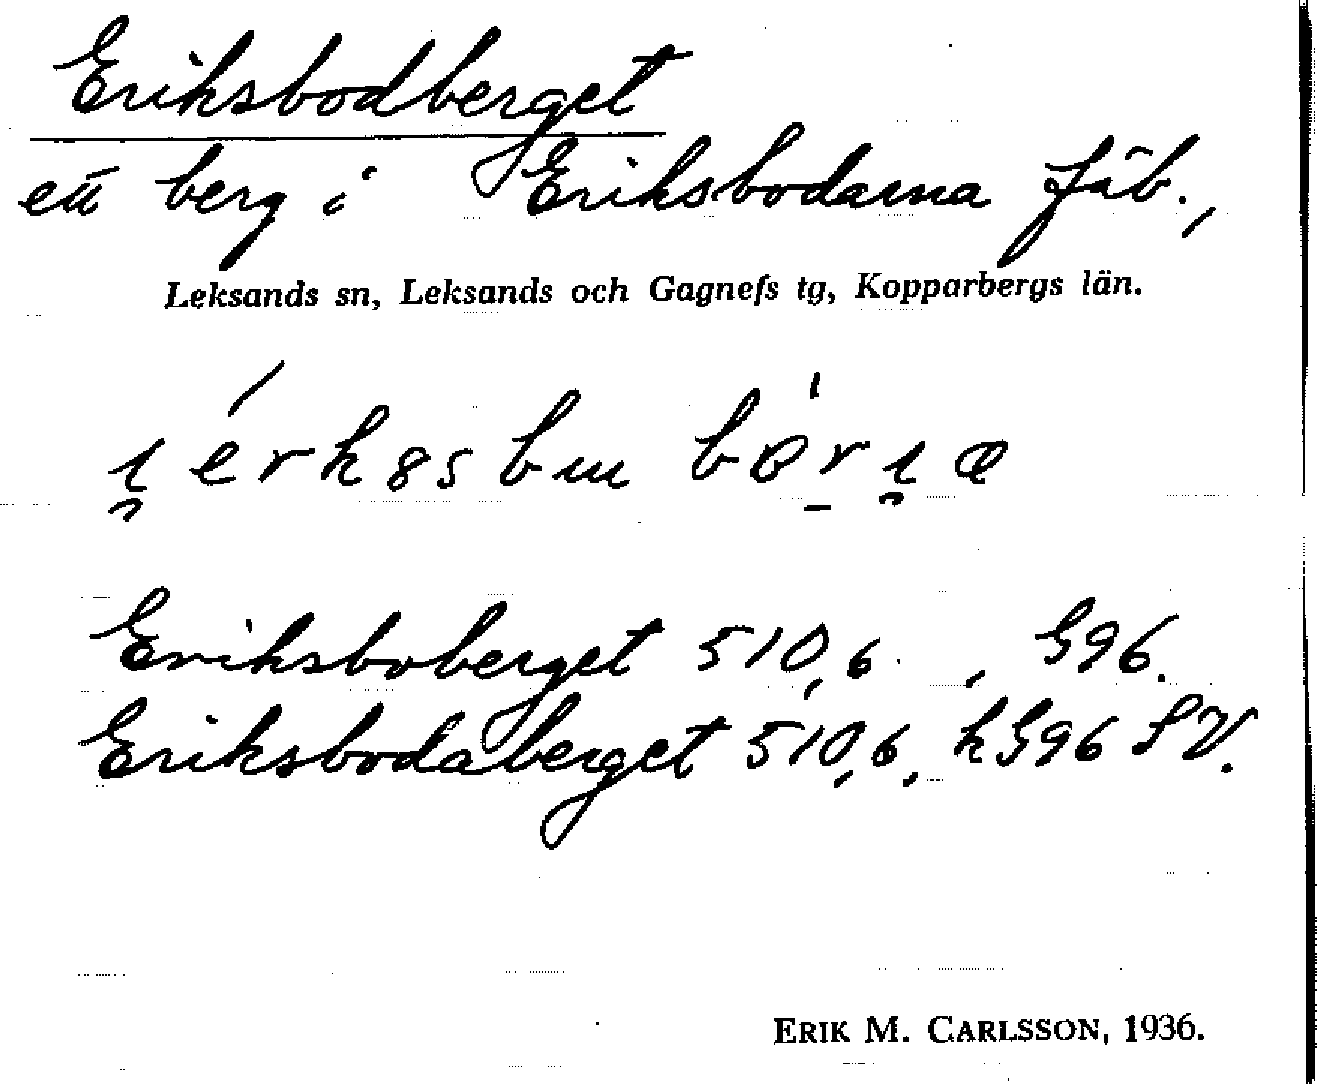 Eriksbodberget
ett berg i Eriksbodarna fäb.,
Leksands sn, Leksands och Gagnefs tg, Kopparbergs län.
Eriksboberget 510,6 , G96.
Eriksbodaberget 510,6, hG96 SV.
ERIK M. CARLSSON, 1936.